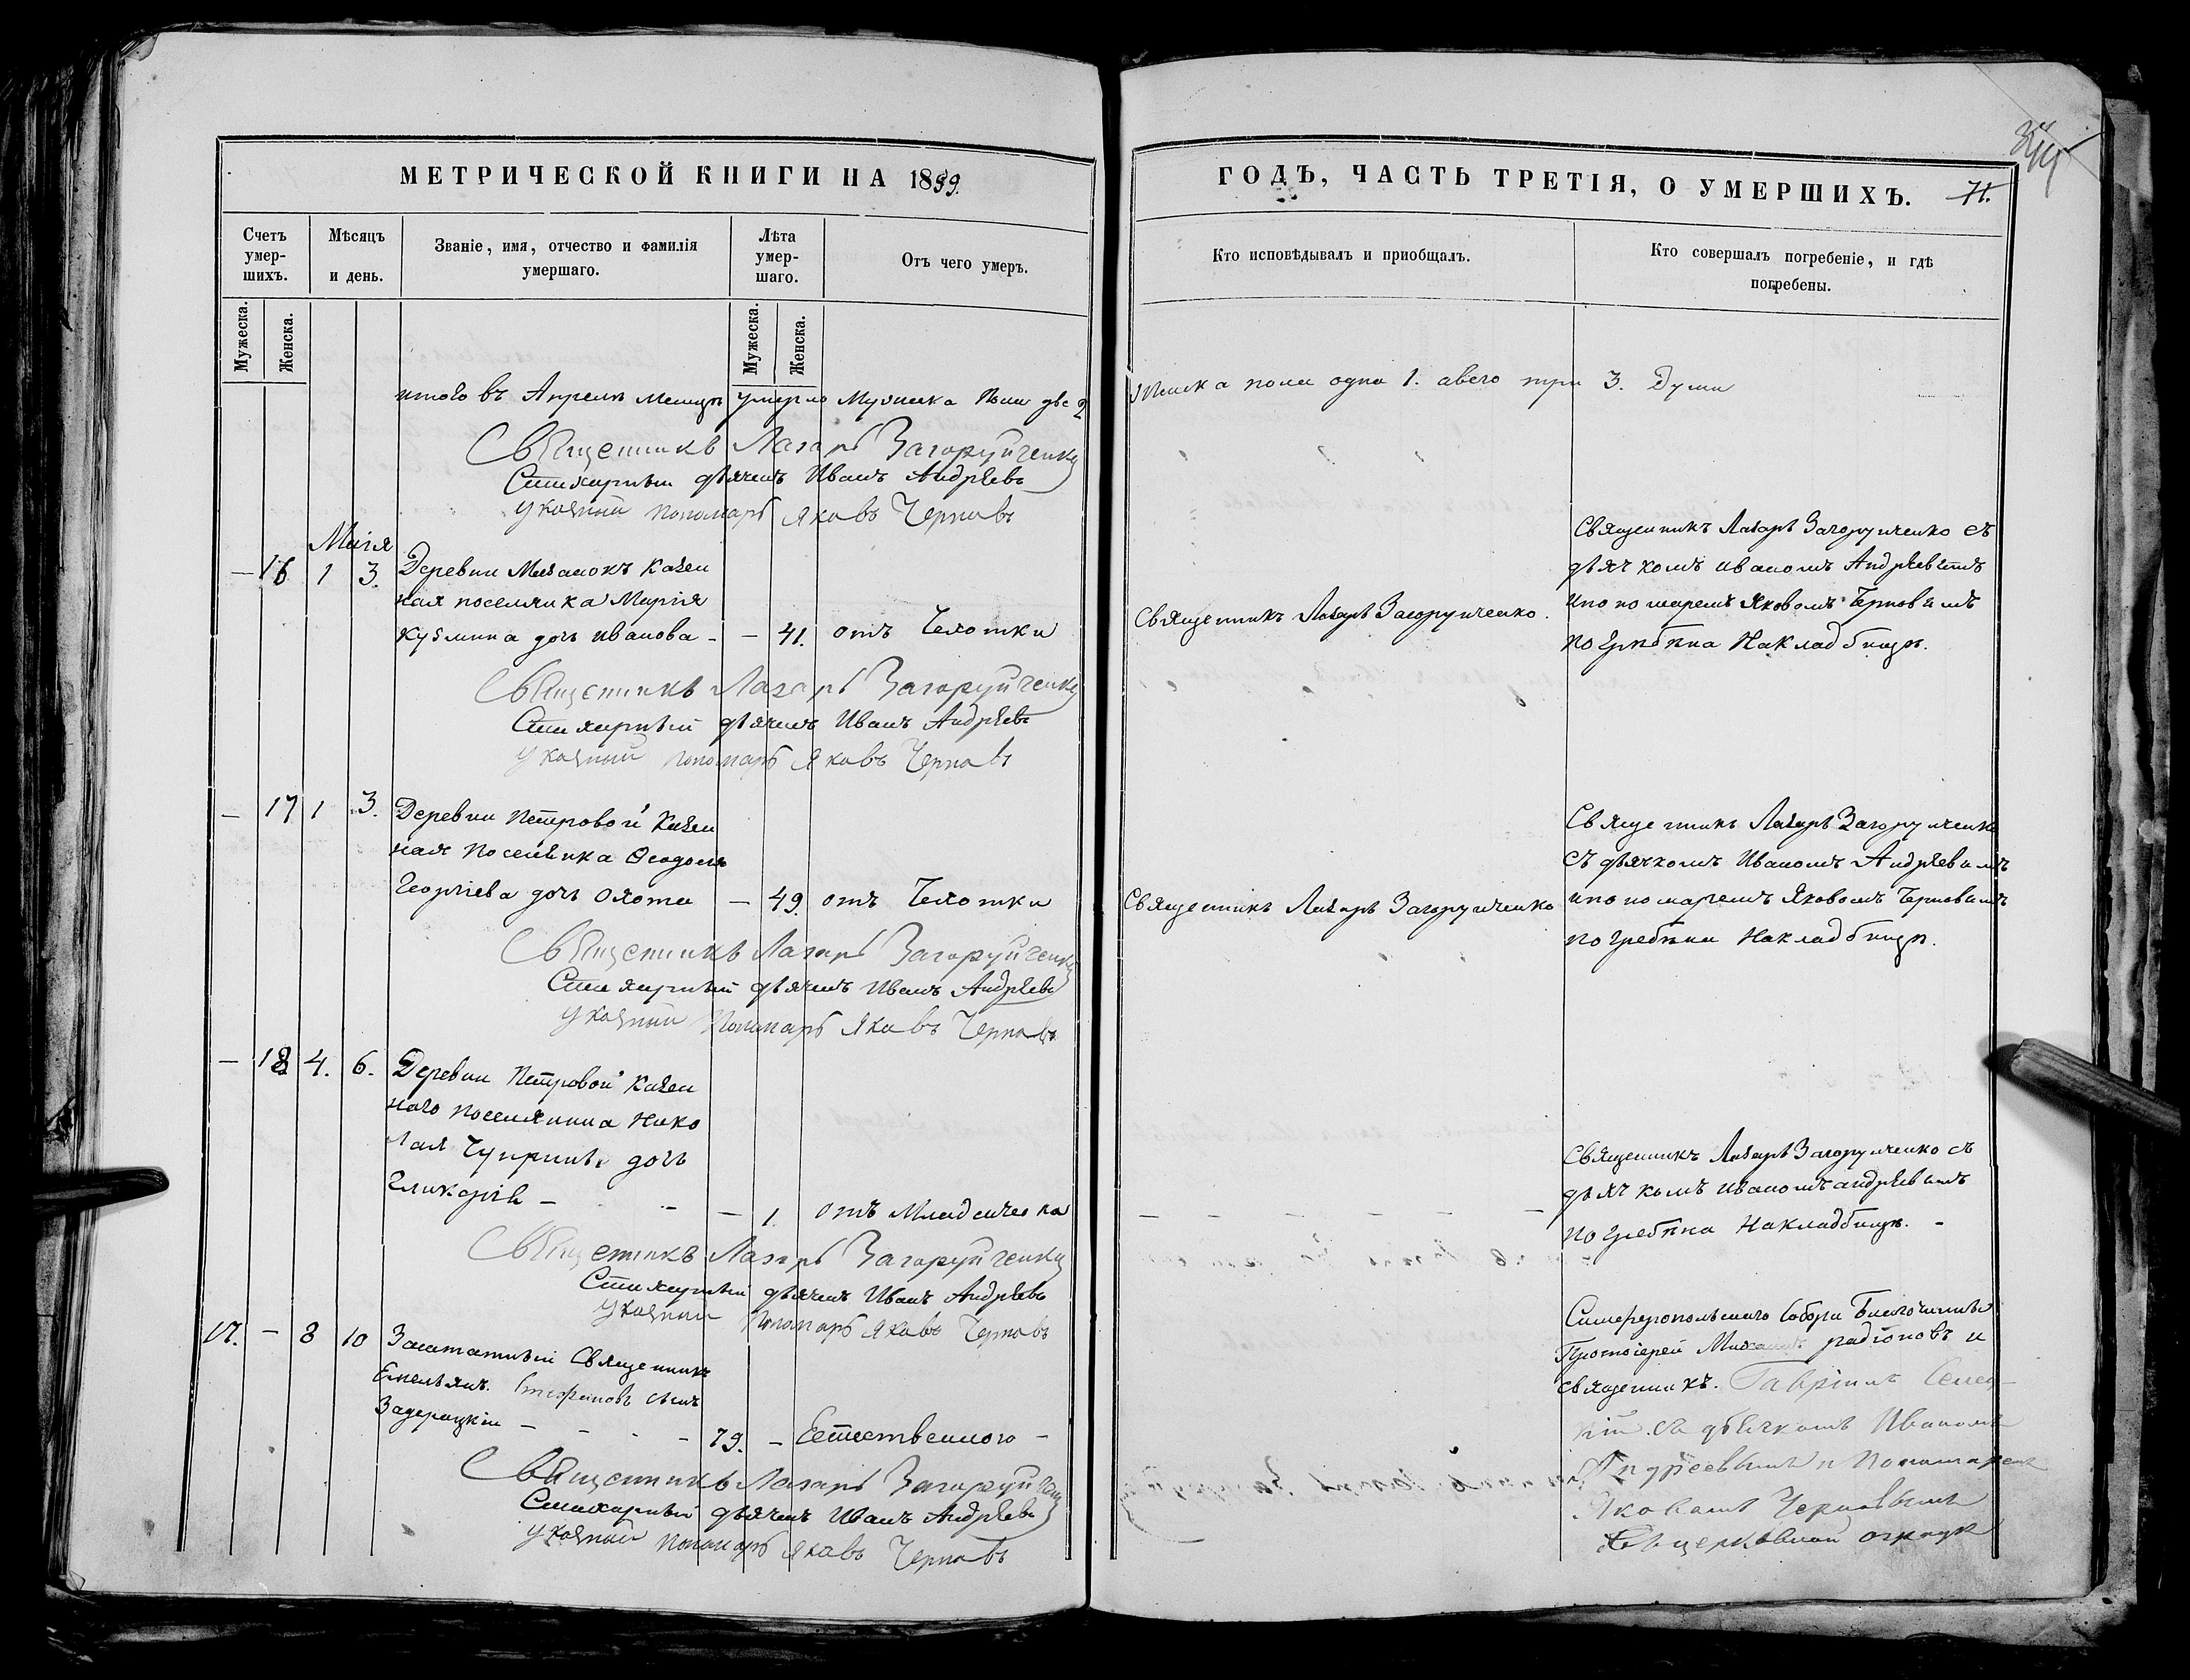 МЕТРИЧЕСКОЙ КНИГИ НА 1859.
Счетъ умер-шихъ.
Мѣсяцъ и день.
Званіе, имя, отчество и фамилія умершаго.
Лѣта умер-шаго.
Отъ чего умеръ.
Мужеска.
Женска.
Мужеска.
Женска.
итого въ Апрелѣ месяцѣ умерло Мужеска Пола две 2
Священникъ Лазарь Загоруйченко
Стихарный дьячекъ Иванъ Андрѣевъ
указный пономарь Яковъ Черновъ
Маія
— 16 1 3. Деревни Мазанокъ казен
ная поселянка Марія
Кузмина дочь Иванова - — 41. отъ Чехотки
Священникъ Лазарь Загоруйченко
Стихарный дьячекъ Иванъ Андрѣевъ
указный пономарь Яковъ Черновъ
— 17 1 3. Деревни Петровой казен
ная поселянка
Георгіева дочь — 49. отъ Чехотки
Священникъ Лазарь Загоруйченко
Стихарный дьячекъ Иванъ Андрѣевъ
указный Пономарь Яковъ Черновъ
— 18 4. 6. Деревни Петровой казен
наго поселянина Нико
лая дочь
Гликерія — - — 1 отъ Младенческа
Священникъ Лазарь Загоруйченко
Стихарный дьячекъ Иванъ Андрѣевъ
указный Пономарь Яковъ Черновъ
17. — 8 10 Заштатный Священникъ
Емельянъ Стефановъ сынъ
Задерацкій — - - - 79. — Естественного -
Священникъ Лазарь Загоруйченко
Стихарный дьячекъ Иванъ Андрѣевъ
указный пономарь Яковъ Черновъ
ГОДЪ, ЧАСТЬ ТРЕТІЯ, О УМЕРШИХЪ. 71.
Кто исповѣдывалъ и приобщалъ.
Кто совершалъ погребеніе, и гдѣ погребены.
Женска пола одна 1. авсего три 3. Души
Священникъ Лазарь Загоруйченко съ
дьячкомъ иваномъ Андрѣевымъ
ипономаремъ Яковомъ Черновымъ
погребена Накладбищѣ.
Священникъ Лазарь Загоруйченко.
Священникъ Лазарь Загоруйченко
съ дьячкомъ Иваномъ Андрѣевымъ
ипономаремъ Яковомъ Черновымъ
погребена Накладбищѣ.
Священникъ Лазарь Загоруйченко
Священникъ Лазарь Загоруйченко съ
дьячкомъ иваномъ андрѣевымъ
погребена Накладбищѣ. -
— — — — — — —
Симферопольскаго Собора Благочинный
Протоіерей Михаилъ радіоновъ и
священникъ. Гавріилъ
съ дьячкомъ Иваномъ
Андреевымъ и Пономаремъ
Яковомъ Черновымъ
въ церковной оградѣ